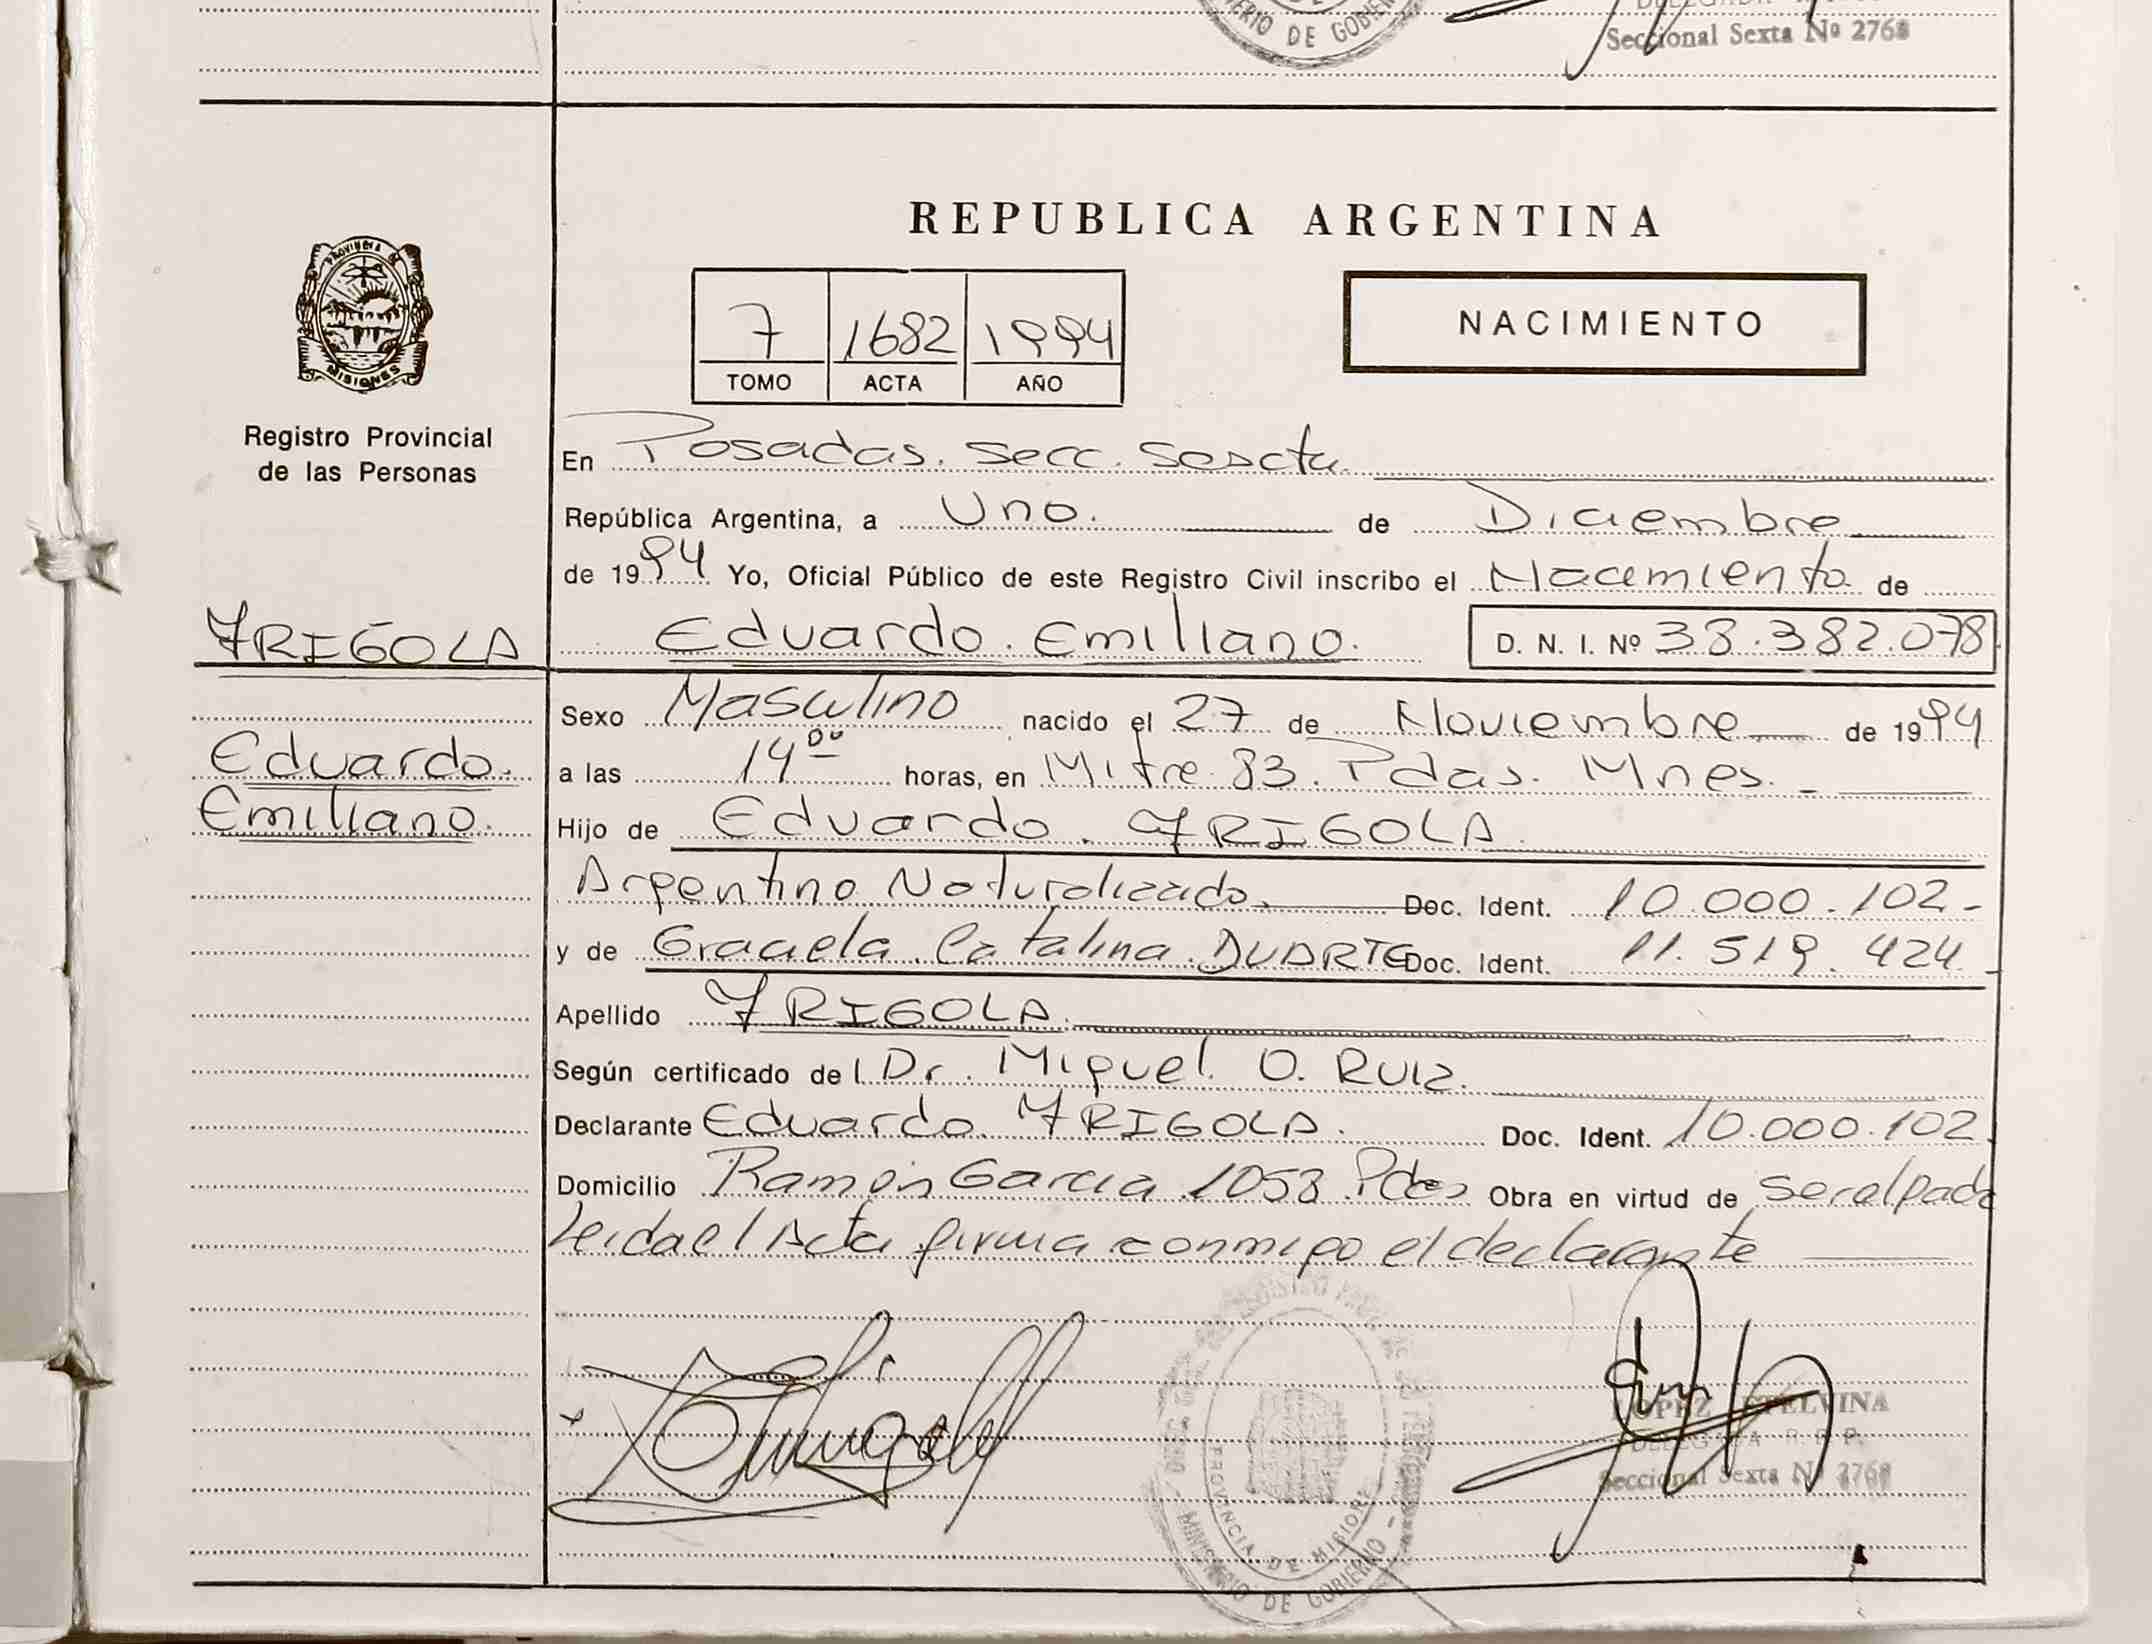 MINISTERIO DE GOBIERNO
Seccional Sexta Nº 2768
REPUBLICA ARGENTINA
PROVINCIA DE MISIONES
7 1682 1994
TOMO ACTA AÑO
NACIMIENTO
Registro Provincial
de las Personas
En Posadas. Secc. Sexta.
República Argentina, a Uno. de Diciembre
de 1994 Yo, Oficial Público de este Registro Civil inscribo el Nacimiento de
FRIGOLA
Eduardo. Emiliano. D. N. I. Nº 38.382.078
Sexo Masculino nacido el 27 de Noviembre de 1994
Eduardo.
Emiliano.
a las 14 00 horas, en Mitre 83. Pdas. Mnes.
Hijo de Eduardo. FRIGOLA
Argentino Naturalizado. Doc. Ident. 10.000.102-
y de Graciela. Catalina. DUARTE Doc. Ident. 11.519.424
Apellido FRIGOLA.
Según certificado del Dr. Miguel O. RUIZ.
Declarante Eduardo FRIGOLA. Doc. Ident. 10.000.102
Domicilio Ramón Garcia 1058 Pdas Obra en virtud de ser el padre
Leida el Acta firma conmigo el declarante
PROVINCIA DE MISIONES
MINISTERIO DE GOBIERNO
LOPEZ ETELVINA
DELEGADA R. P. P.
Seccional Sexta Nº 2768